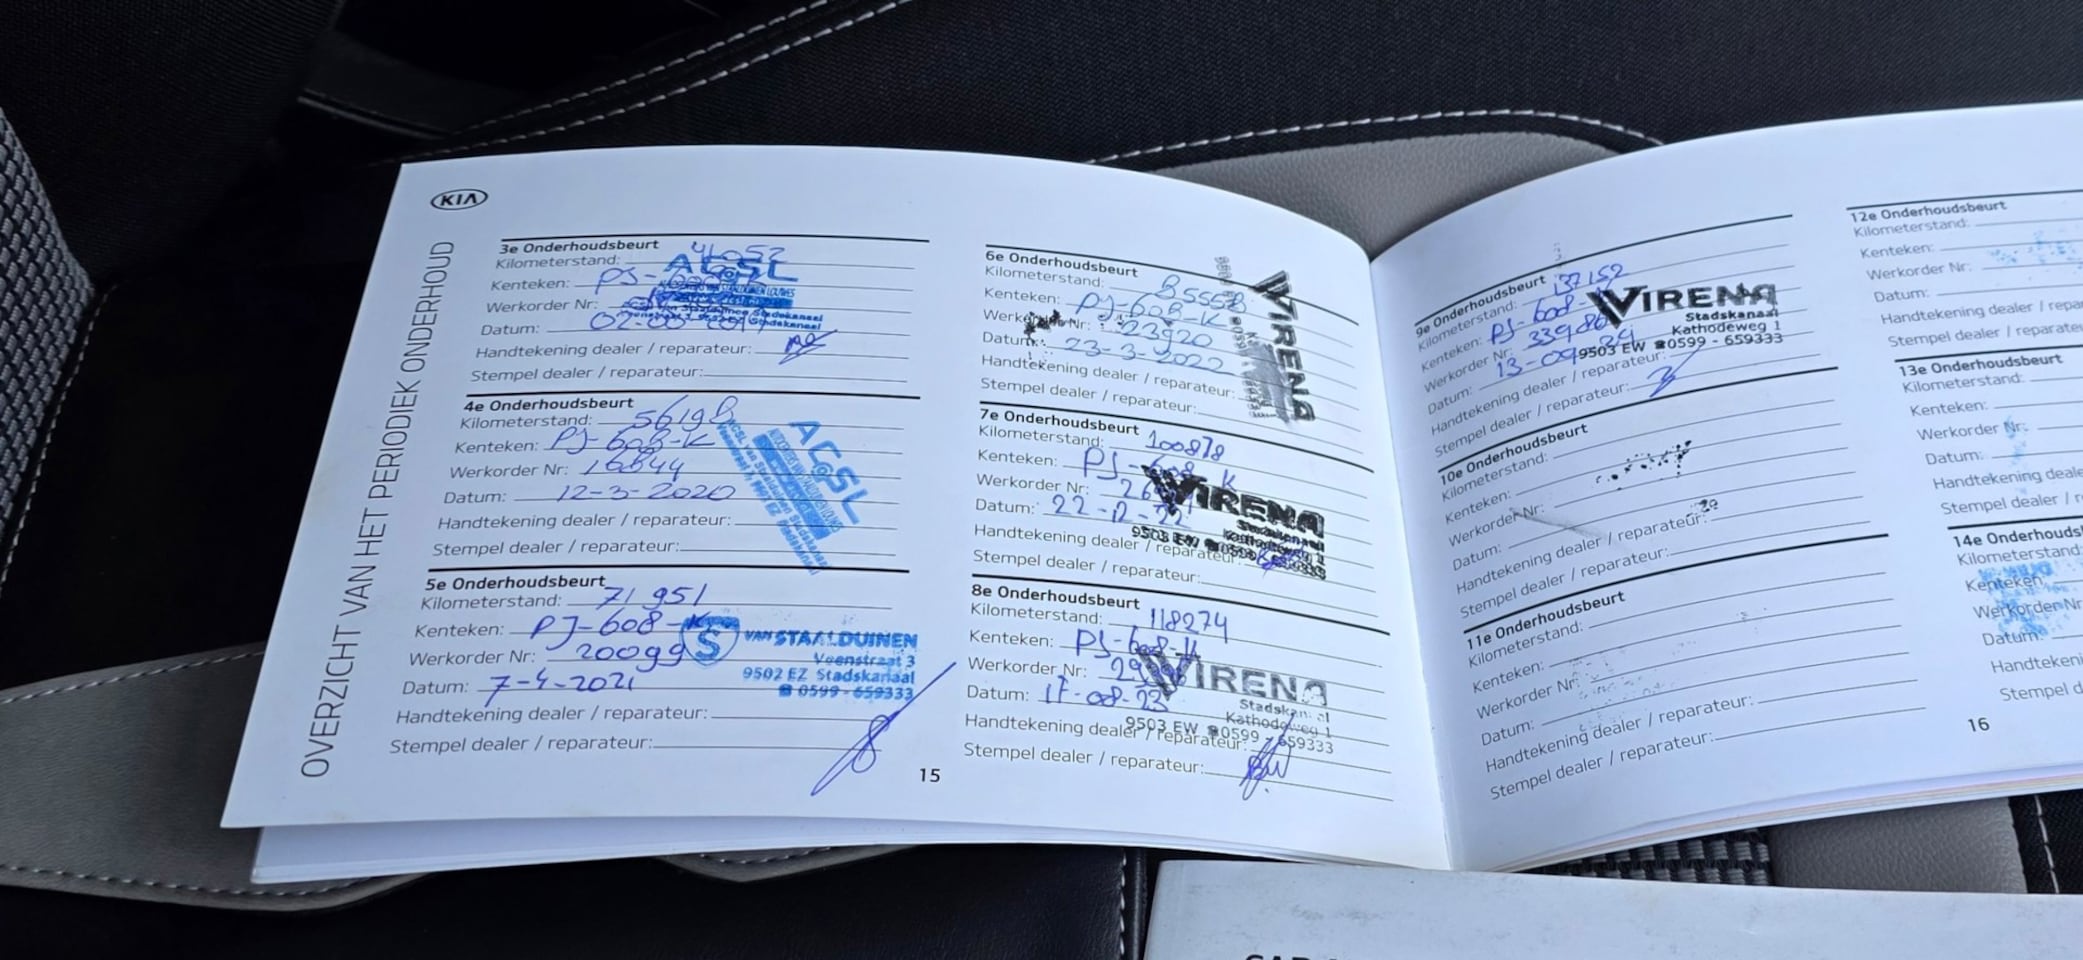 KIA
OVERZICHT VAN HET PERIODIEK ONDERHOUD
3e Onderhoudsbeurt
Kilometerstand:
Kenteken: PJ-
Werkorder Nr:
Datum: 02-
Handtekening dealer / reparateur:
Stempel dealer / reparateur:
ACSL
4e Onderhoudsbeurt
Kilometerstand: 56198
Kenteken: PJ-608-K
Werkorder Nr: 16844
Datum: 12-3-2020
Handtekening dealer / reparateur:
Stempel dealer / reparateur:
ACSL
5e Onderhoudsbeurt
Kilometerstand: 71951
Kenteken: PJ-608-K
Werkorder Nr: 20099
Datum: 7-4-2021
Handtekening dealer / reparateur:
Stempel dealer / reparateur:
S VAN STAALDUINEN
Veenstraat 3
9502 EZ Stadskanaal
☎ 0599 - 659333
15
6e Onderhoudsbeurt
Kilometerstand: 85558
Kenteken: PJ-608-K
Werkorder Nr: 23920
Datum: 23-3-2022
Handtekening dealer / reparateur:
Stempel dealer / reparateur:
VIRENA
7e Onderhoudsbeurt
Kilometerstand: 100878
Kenteken: PJ-608-K
Werkorder Nr:
Datum: 22-12-22
Handtekening dealer / reparateur:
Stempel dealer / reparateur:
VIRENA
Stadskanaal
Kathodeweg 1
9503 EW ☎0599 - 659333
8e Onderhoudsbeurt
Kilometerstand: 118274
Kenteken: PJ-608-K
Werkorder Nr:
Datum: 17-08-23
Handtekening dealer / reparateur:
Stempel dealer / reparateur:
VIRENA
Stadskanaal
Kathodeweg 1
9503 EW ☎0599 - 659333
9e Onderhoudsbeurt
Kilometerstand: 137152
Kenteken: PJ-608-
Werkorder Nr:
Datum: 13-09-24
Handtekening dealer / reparateur:
Stempel dealer / reparateur:
VIRENA
Stadskanaal
Kathodeweg 1
9503 EW ☎0599 - 659333
10e Onderhoudsbeurt
Kilometerstand:
Kenteken:
Werkorder Nr:
Datum:
Handtekening dealer / reparateur:
Stempel dealer / reparateur:
11e Onderhoudsbeurt
Kilometerstand:
Kenteken:
Werkorder Nr:
Datum:
Handtekening dealer / reparateur:
Stempel dealer / reparateur:
12e Onderhoudsbeurt
Kilometerstand:
Kenteken:
Werkorder Nr:
Datum:
Handtekening dealer / repara
Stempel dealer / reparate
13e Onderhoudsbeurt
Kilometerstand:
Kenteken:
Werkorder Nr:
Datum:
Handtekening deale
Stempel dealer / r
14e Onderhouds
Kilometerstand:
Kenteken:
Werkorden Nr
Datum:
Handteken
Stempel d
16